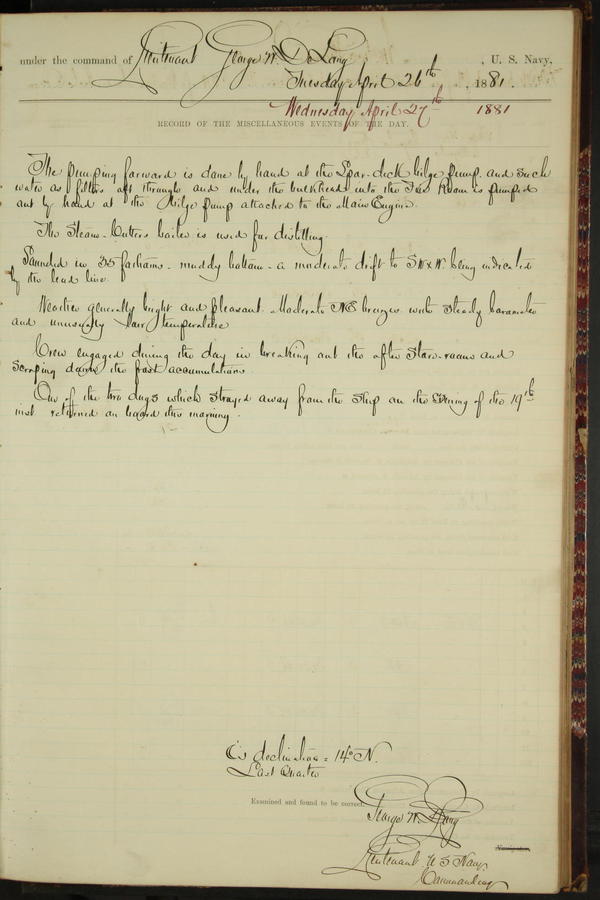 under the command of Lieutenant George W. De Long, U. S. Navy,
Tuesday April 26th, 1881.
Wednesday April 27th 1881
RECORD OF THE MISCELLANEOUS EVENTS OF THE DAY.
The pumping forward is done by hand at the Spar-deck bilge pump, and such
water as filters aft through and under the bulkhead into the Fire Room is pumped
out by hand at the Bilge pump attached to the Main Engine.
The Steam-Cutters boiler is used for distilling.
Sounded in 35 fathoms - muddy bottom - a moderate drift to SWxW. being indicated
by the lead line.
Weather generally bright and pleasant. Moderate NE breezes with steady barometer
and unusually fair temperature
Crew engaged during the day in breaking out the after Store-rooms and
scraping down the frost accumulations.
One of the two dogs which strayed away from the Ship on the Evening of the 19th
inst returned on board this morning.
declination = 14° N.
Last Quarter
Examined and found to be correct.
George W. De Long
Navigator.
Lieutenant U S Navy
Commanding